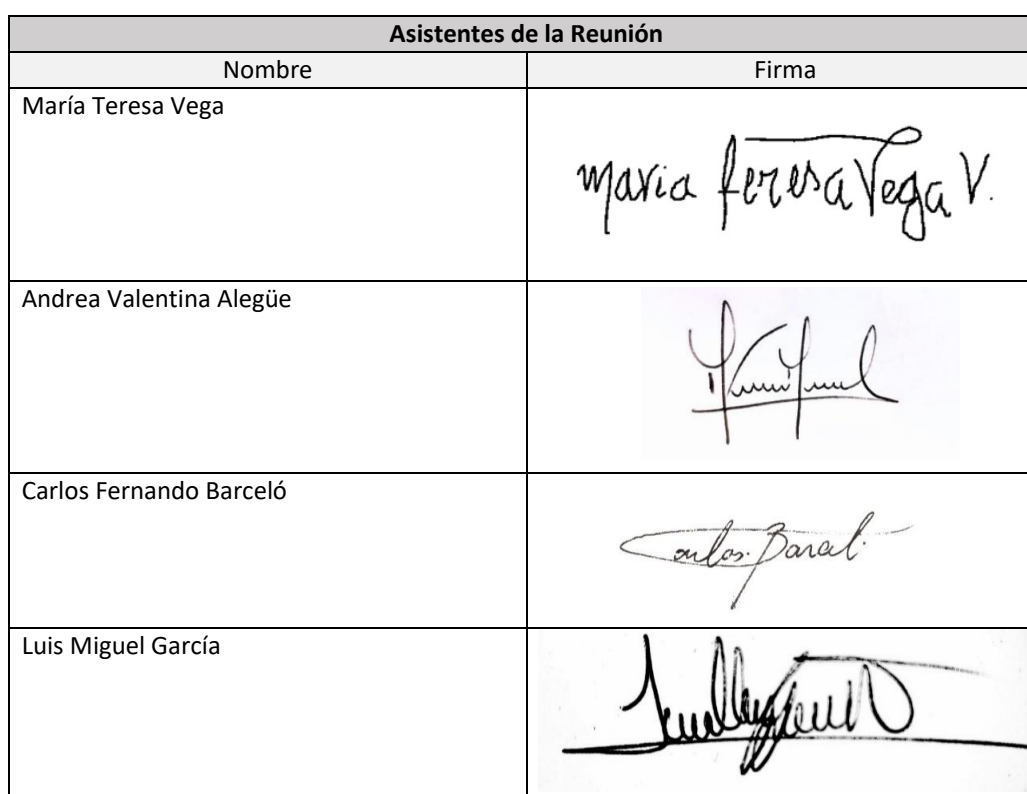 Asistentes de la Reunión
Nombre Firma
María Teresa Vega
maria teresa Vega V.
Andrea Valentina Alegüe
Carlos Fernando Barceló
Carlos Barcel
Luis Miguel García